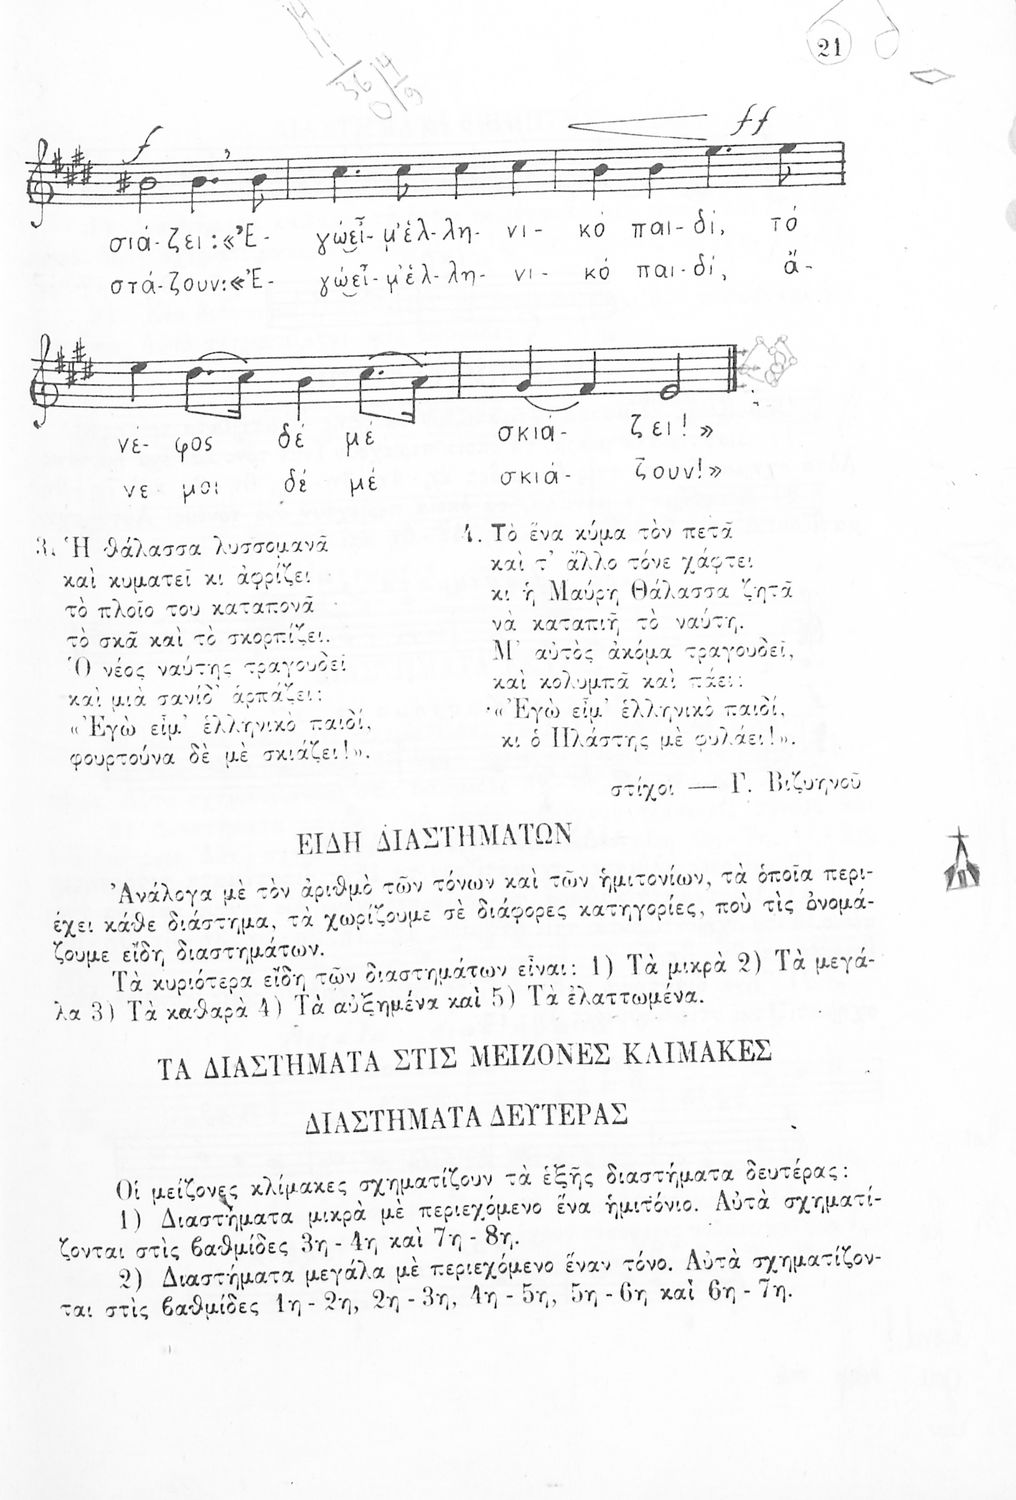 21
f
ff
σιά-ζει:«Ἐ- γώεἶ-μ'ἑλ-λη- νι- κό παι-δί, τό
στά-ζουν:«Ἐ- γώεἶ-μ'ἑλ-λη- νι- κό παι-δί, ἄ-
νέ- φος δέ μέ σκιά- ζει!»
νε μοι δέ μέ σκιά- ζουν!»
3. Ἡ θάλασσα λυσσομανᾶ
καὶ κυματεῖ κι ἀφρίζει
τὸ πλοῖο του καταπονᾶ
τὸ σκᾶ καὶ τὸ σκορπίζει.
Ὁ νέος ναύτης τραγουδεῖ
καὶ μιὰ σανίδ' ἁρπάζει:
«Ἐγὼ εἶμ' ἑλληνικὸ παιδί,
φουρτούνα δὲ μὲ σκιάζει!».
4. Τὸ ἕνα κύμα τὸν πετᾶ
καὶ τ' ἄλλο τόνε χάφτει
κι ἡ Μαύρη Θάλασσα ζητᾶ
νὰ καταπιῆ τὸ ναύτη.
Μ' αὐτὸς ἀκόμα τραγουδεῖ,
καὶ κολυμπᾶ καὶ πάει:
«Ἐγὼ εἶμ' ἑλληνικὸ παιδί,
κι ὁ Πλάστης μὲ φυλάει!».
στίχοι — Γ. Βιζυηνοῦ
ΕΙΔΗ ΔΙΑΣΤΗΜΑΤΩΝ
Ἀνάλογα μὲ τὸν ἀριθμὸ τῶν τόνων καὶ τῶν ἡμιτονίων, τὰ ὁποῖα περι-
έχει κάθε διάστημα, τὰ χωρίζουμε σὲ διάφορες κατηγορίες, ποὺ τὶς ὀνομά-
ζουμε εἴδη διαστημάτων.
Τὰ κυριότερα εἴδη τῶν διαστημάτων εἶναι: 1) Τὰ μικρὰ 2) Τὰ μεγά-
λα 3) Τὰ καθαρὰ 4) Τὰ αὐξημένα καὶ 5) Τὰ ἐλαττωμένα.
ΤΑ ΔΙΑΣΤΗΜΑΤΑ ΣΤΙΣ ΜΕΙΖΟΝΕΣ ΚΛΙΜΑΚΕΣ
ΔΙΑΣΤΗΜΑΤΑ ΔΕΥΤΕΡΑΣ
Οἱ μείζονες κλίμακες σχηματίζουν τὰ ἑξῆς διαστήματα δευτέρας:
1) Διαστήματα μικρὰ μὲ περιεχόμενο ἕνα ἡμιτόνιο. Αὐτὰ σχηματί-
ζονται στὶς βαθμίδες 3η - 4η καὶ 7η - 8η.
2) Διαστήματα μεγάλα μὲ περιεχόμενο ἕναν τόνο. Αὐτὰ σχηματίζον-
ται στὶς βαθμίδες 1η - 2η, 2η - 3η, 4η - 5η, 5η - 6η καὶ 6η - 7η.